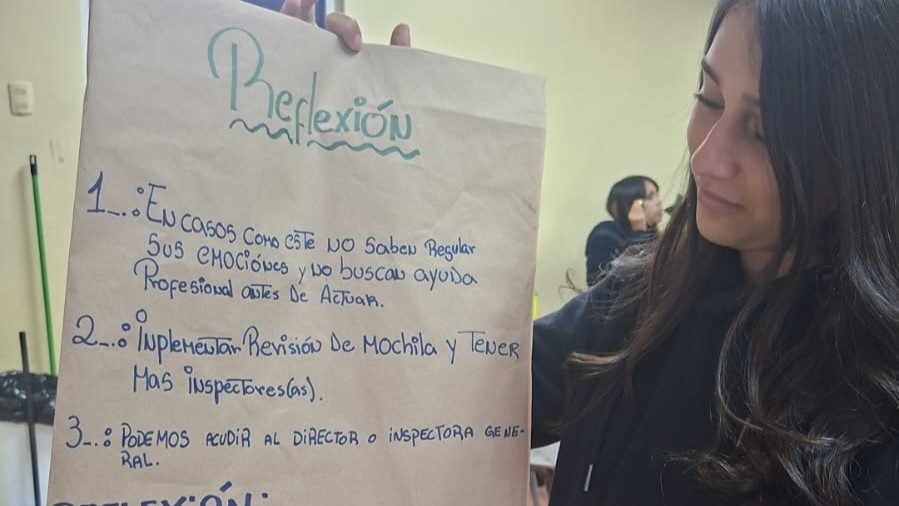 Reflexión
1_.: En casos como este no saben Regular
sus emociónes y no buscan ayuda
Profesional antes De Actuar.
2_.: Inplementar Revisión De Mochila y Tener
Mas inspectores(as).
3_.: PODEMOS ACUDIR AL DIRECTOR O INSPECTORA GENE-
RAL.
REFLEXIÓN: